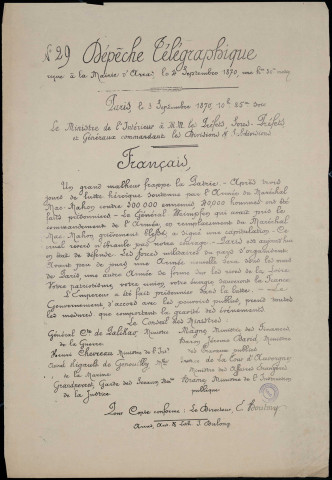 N° 29 Dépêche Télégraphique
reçue à la Mairie d'Arras, le 4 Septembre 1870,
Paris, le 3 Septembre 1870, 10h 25m Soir
Le Ministre de l'Intérieur à M.M. les Préfets, Sous-Préfets,
et Généraux commandant les Divisions & Sdivisions
Français,
Un grand malheur frappe la Patrie. Après trois
jours de lutte héroïque soutenue par l'Armée du Maréchal
Mac-Mahon contre 300 000 ennemis, 40000 hommes ont été
faits prisonniers. Le Général Wimpfen qui avait pris le
commandement de l'Armée en remplacement du Maréchal
Mac-Mahon grièvement blessé, a signé une capitulation. Ce
cruel revers n'ébranle pas notre courage. Paris est aujourd'hui
en état de défense. Les forces militaires du pays s'organisent.
Avant peu de jours une Armée nouvelle sera sous les murs
de Paris, une autre Armée se forme sur les rives de la Loire.
Votre patriotisme, votre union, votre énergie sauveront la France.
L'Empereur a été fait prisonnier dans la lutte. Le
Gouvernement, d'accord avec les pouvoirs publics, prend toutes
les mesures que comportent la gravité des événements.
Le Conseil des Ministres
Général Cte de Palikao Ministre de la Guerre
Henri Chevreau Ministre de l'Int.
Amiral Rigault de Genouilly Min. de la Marine
Grandperret, Garde des Sceaux Min. de la Justice
Magne Ministre des Finances
Baron Jérôme David Ministre des Travaux publics
Prince de la Tour d'Auvergne Ministre des Affaires Etrangères
Brame Ministre de l'Instruction publique
Pour Copie conforme : Le Directeur,
Arras, Aut. & Lith.